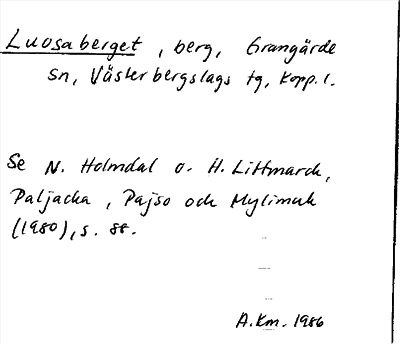 Luosaberget, berg, Grangärde
sn, Västerbergslags tg, Kopp. l.
Se N. Holmdal o. H. Littmarck,
Paljacka, Pajso och Mylimuk
(1980), s. 88.
A.Km. 1986